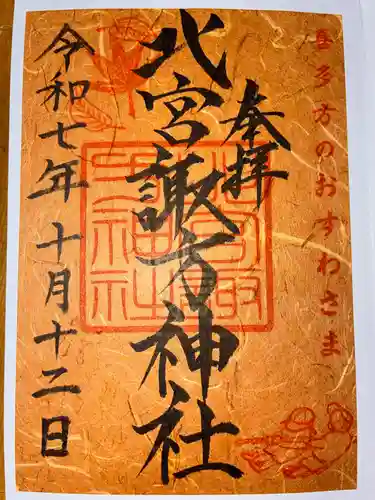 喜多方のおすわさま
奉拝
北宮諏方神社
令和七年十月十二日